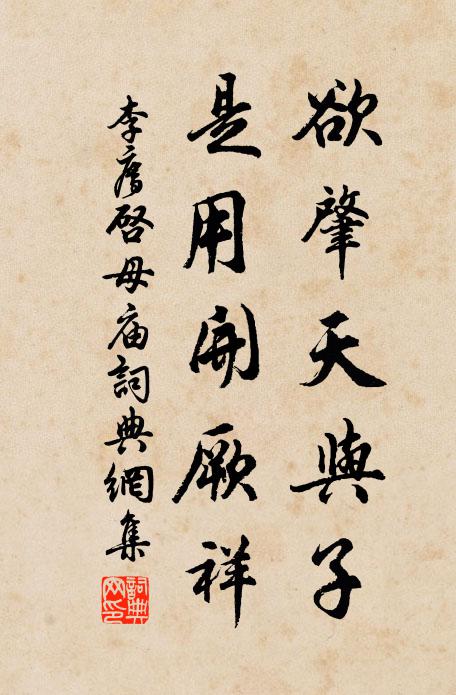 欲肇天與子
是用開厥祥
李廌啓母庙詞典網集
詞典網印